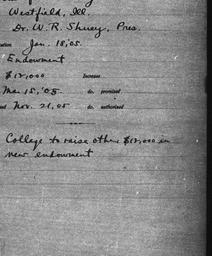 Westfield, Ill.
Dr. W. R. Shuey, Pres.
Jan. 18, '05.
Endowment
$12,000 Increase
Mar 15, '05 do. promised
Nov. 21, 05 do. authorized
College to raise other $12,000 in
new endowment